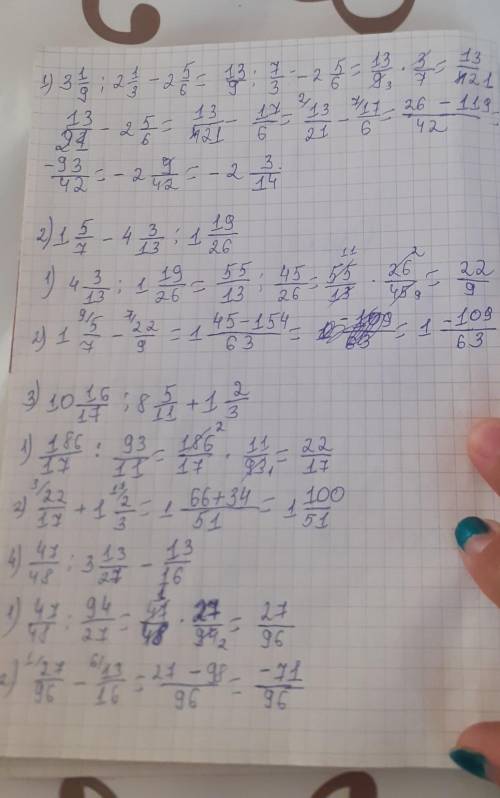 1) 3 1/9 : 2 1/3 - 2 5/6 = 13/9 : 7/3 - 2 5/6 = 13/9 3 · 3/7 = 13/21
13/21 - 2 5/6 = 13/21 - 17/6 = 2/13/21 - 7/17/6 = 26-119/42 =
-93/42 = -2 9/42 = -2 3/14
2) 1 5/7 - 4 3/13 : 1 19/26
1) 4 3/13 : 1 19/26 = 55/13 : 45/26 = 55 11/13 · 26 2/45 9 = 22/9
2) 1 9/5/7 - 7/22/9 = 1 45-154/63 = 1 -109/63
3) 10 16/17 : 8 5/11 + 1 2/3
1) 186/17 : 93/11 = 186 2/17 · 11/93 1 = 22/17
2) 3/22/17 + 1 2/3 = 1 66+34/51 = 1 100/51
4) 47/48 : 3 13/27 - 13/16
1) 47/48 : 94/27 = 47 1/48 · 27/94 2 = 27/96
2) 1/27/96 - 6/13/16 = 27-98/96 = -71/96